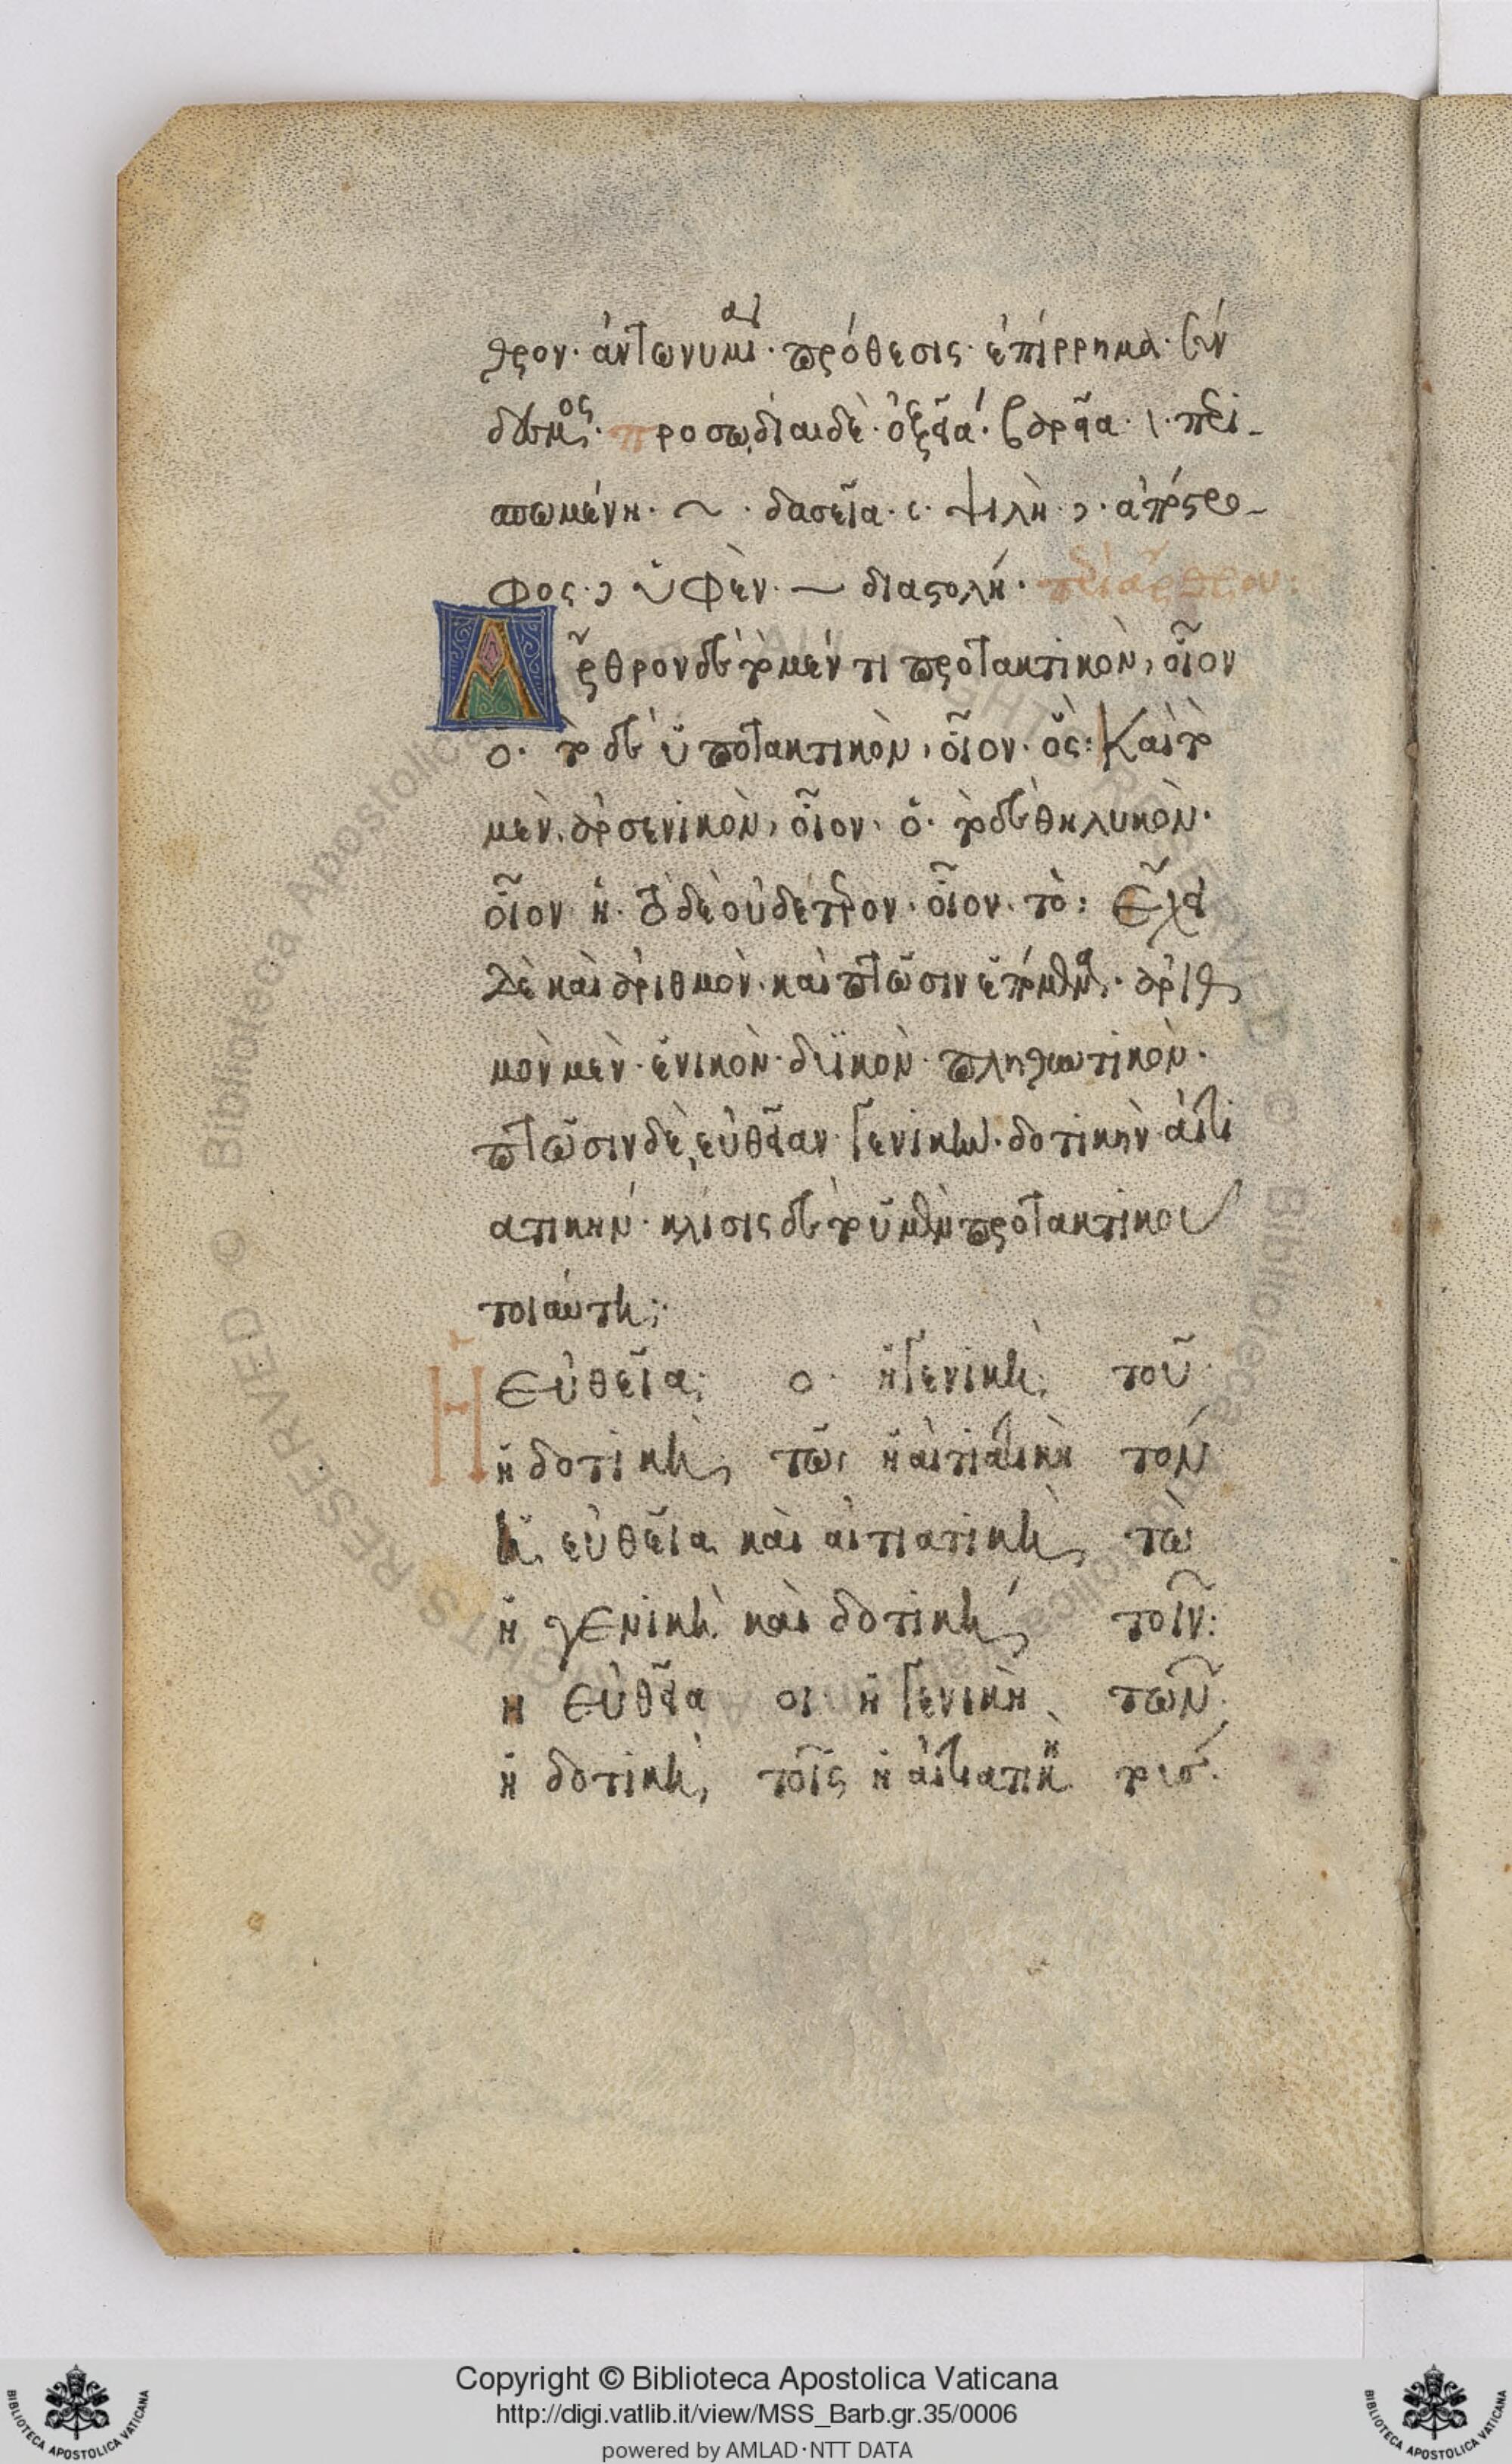 θρον· ἀντωνυμία· πρόθεσις· ἐπίρρημα· σύν
δεσμος· προσωδίαι δὲ· ὀξεῖα ́· βαρεῖα· \· περι-
σπωμένη· ~ · δασεῖα· ʽ· ψιλὴ ʼ· ἀπόστρο-
φος· ʼ ὑφὲν· ‿ διαστολή· περὶ ἄρθρου:
Ἄρθρον δὲ τὸ μέν τι προτακτικὸν, οἷον
ὁ· τὸ δὲ ὑποτακτικὸν, οἷον· ὅς: Καὶ τὸ
μὲν ἀρσενικὸν, οἷον· ὁ· τὸ δὲ θηλυκὸν·
οἷον ἡ· τὸ δὲ οὐδέτερον· οἷον· τὸ: Ἔχει
δὲ καὶ ἀριθμὸν· καὶ πτῶσιν· ἀριθ
μὸν μὲν· ἑνικὸν· δυϊκὸν· πληθυντικὸν·
πτῶσιν δὲ, εὐθεῖαν· γενικὴν· δοτικὴν αἰτι
ατικήν· κλίσις δὲ τοῦ μὲν προτακτικοῦ
τοιαύτη;·
Ἡ εὐθεῖα; ὁ· ἡ γενικὴ; τοῦ·
ἡ δοτικὴ, τῶι ἡ αἰτιατικὴ τόν
ἡ εὐθεῖα καὶ αἰτιατικὴ, τὼ
ἡ γενικὴ καὶ δοτικὴ, τοῖν:
ἡ εὐθεῖα οἱ ἡ γενικὴ τῶν·
ἡ δοτικὴ, τοῖς ἡ αἰτιατικὴ τούσ·
Copyright © Biblioteca Apostolica Vaticana
http://digi.vatlib.it/view/MSS_Barb.gr.35/0006
powered by AMLAD·NTT DATA